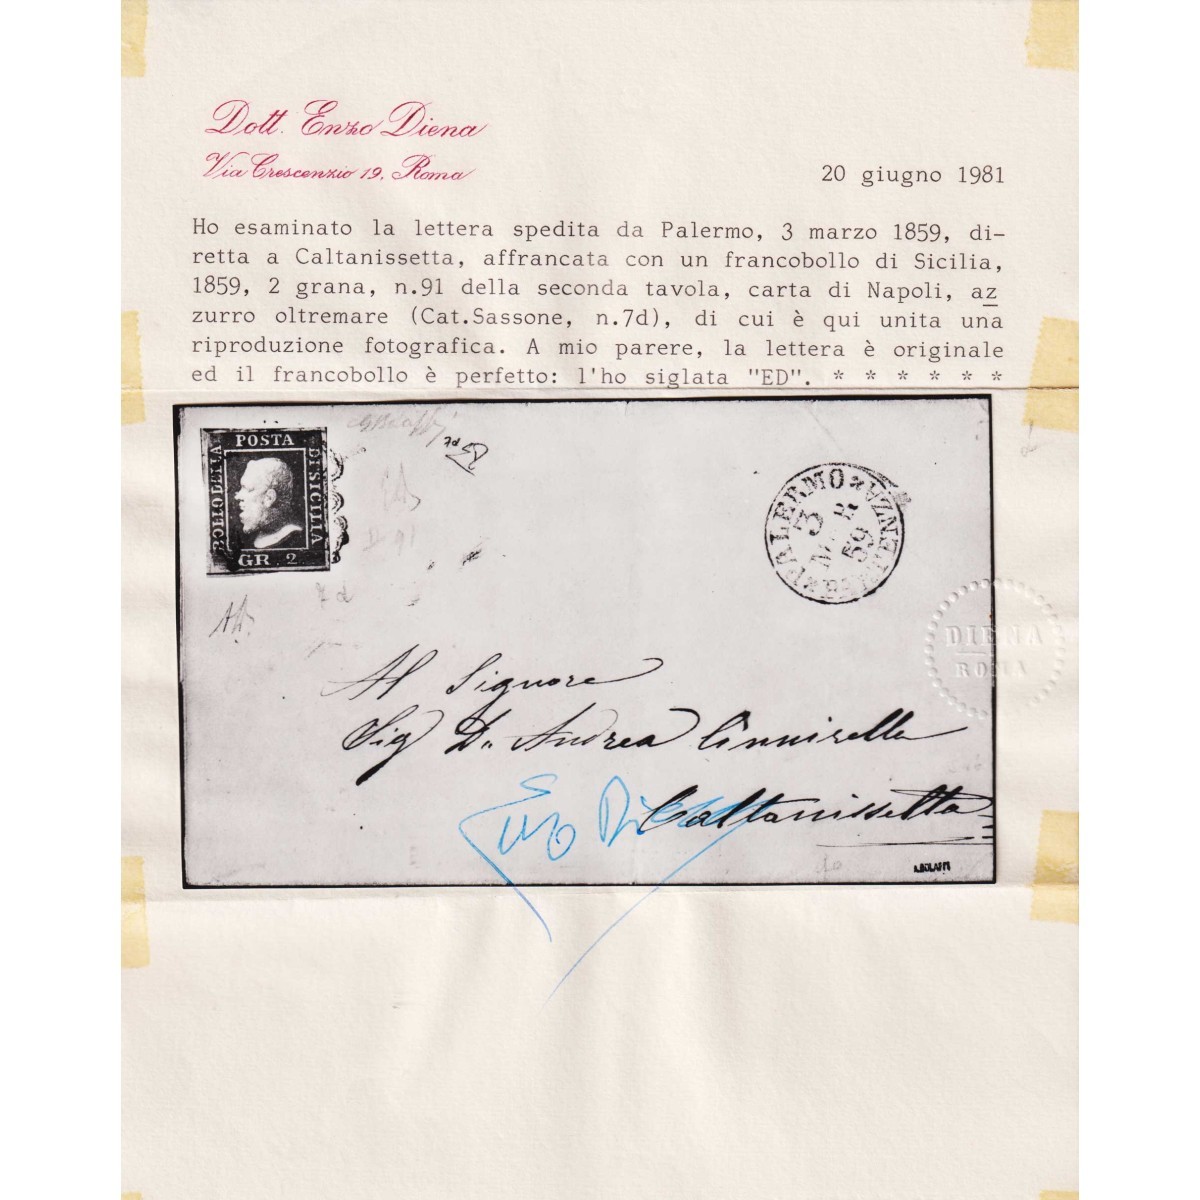 Dott. Enzo Diena
Via Crescenzio 19, Roma
20 giugno 1981
Ho esaminato la lettera spedita da Palermo, 3 marzo 1859, di-
retta a Caltanissetta, affrancata con un francobollo di Sicilia,
1859, 2 grana, n.91 della seconda tavola, carta di Napoli, az
zurro oltremare (Cat.Sassone, n.7d), di cui è qui unita una
riproduzione fotografica. A mio parere, la lettera è originale
ed il francobollo è perfetto: l'ho siglata "ED". * * * * * *
POSTA
BOLLO DELLA
DI SICILIA
GR. 2
7d
II 91
7 d
PALERMO
3
MAR
59
PARTENZA
DIENA
ROMA
Al Signore
Sig D. Andrea
Caltanissetta
Enzo Diena
A.BOLAFFI